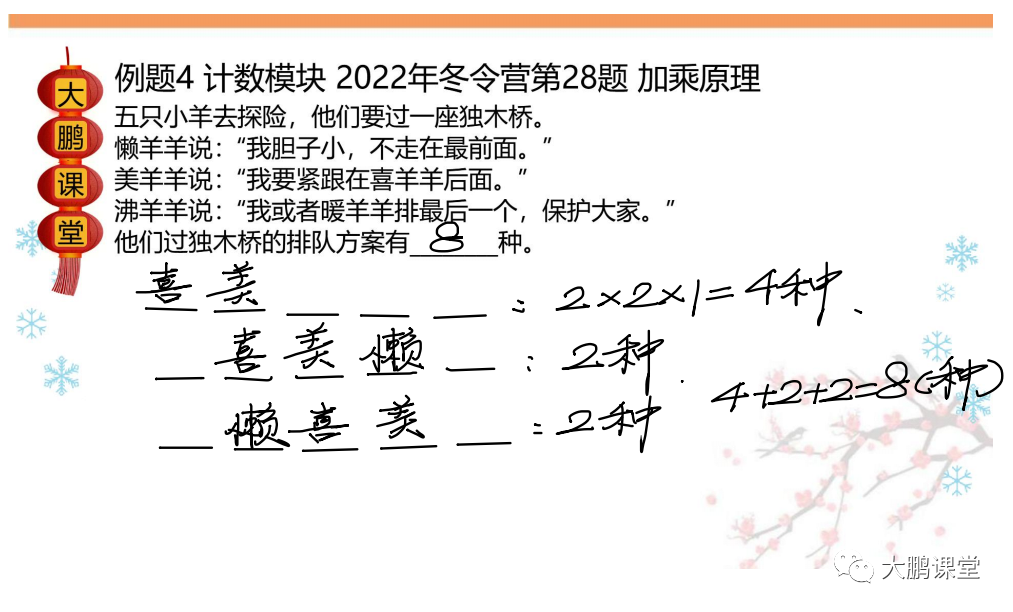 大鹏课堂
例题4 计数模块 2022年冬令营第28题 加乘原理
五只小羊去探险，他们要过一座独木桥。
懒羊羊说：“我胆子小，不走在最前面。”
美羊羊说：“我要紧跟在喜羊羊后面。”
沸羊羊说：“我或者暖羊羊排最后一个，保护大家。”
他们过独木桥的排队方案有___8___种。
喜 美 __ __ __ ：2×2×1=4种、
__ 喜 美 懒 __ ：2种.
4+2+2=8(种)
__ 懒 喜 美 __ ：2种
大鹏课堂